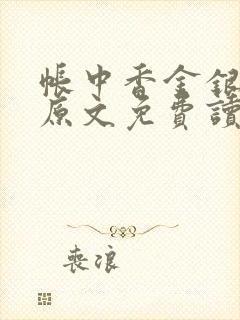 帳中香金銀
原文免費讀
喪浪